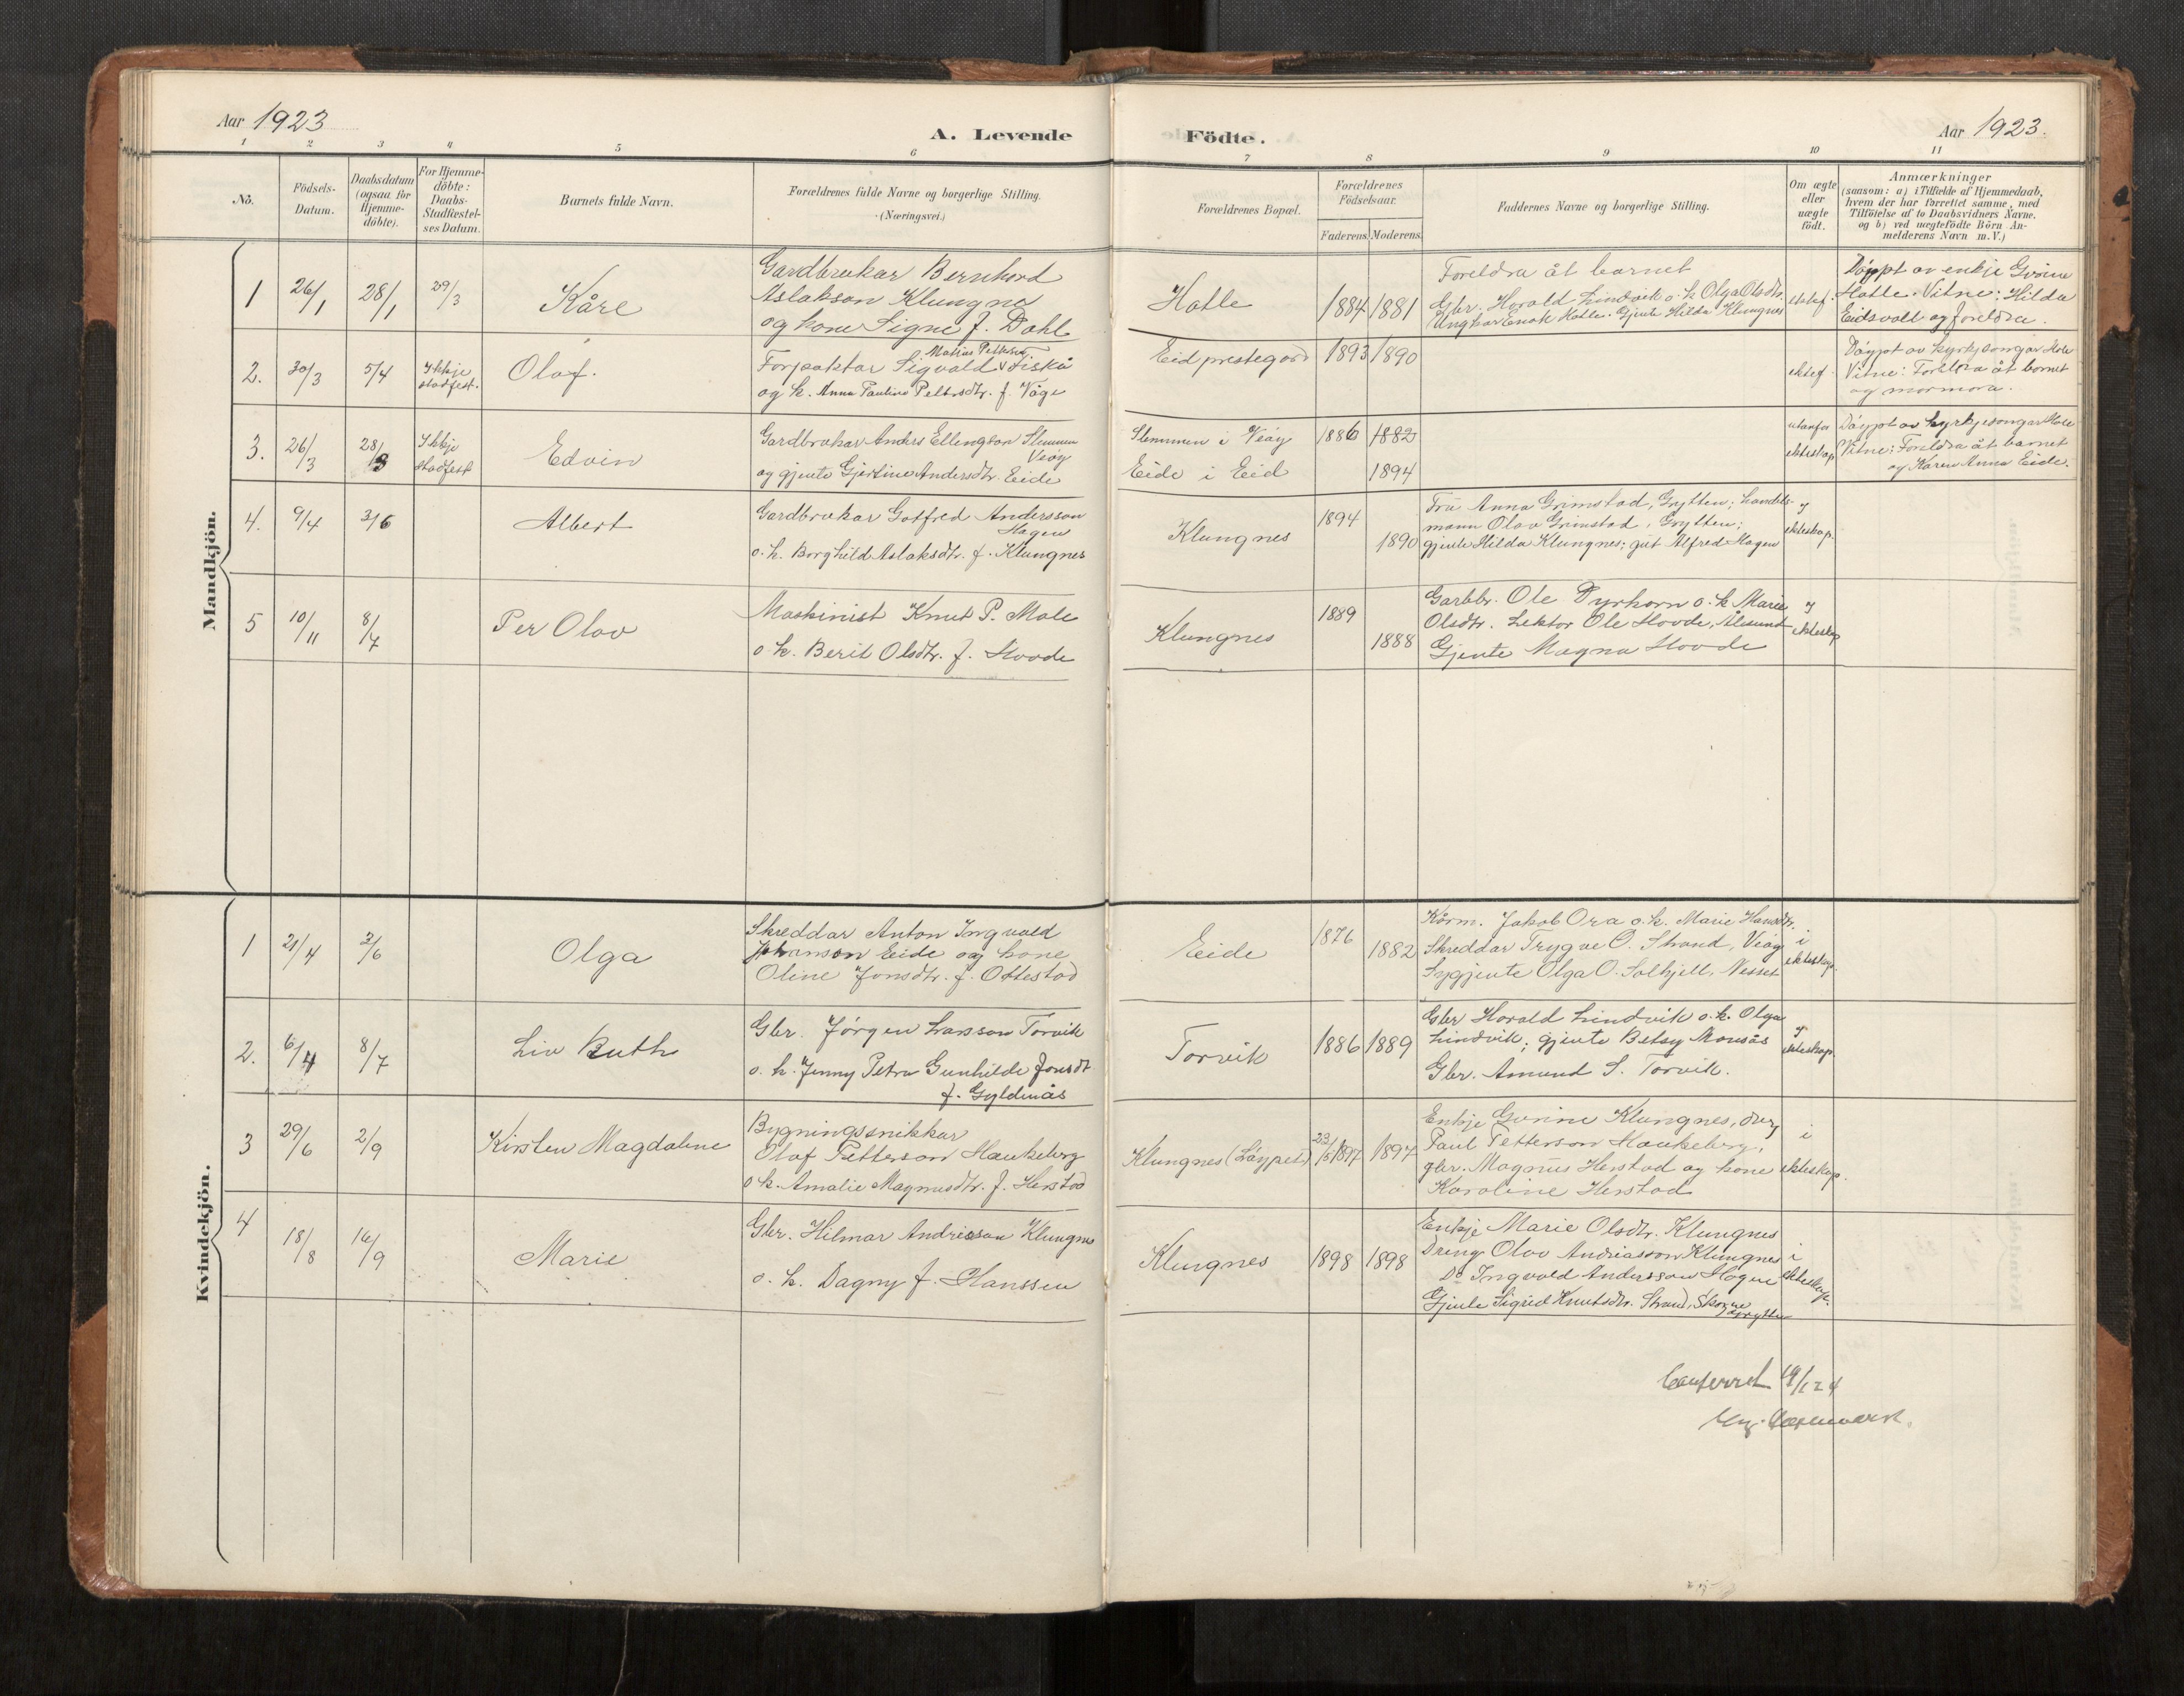 Aar 1923
A. Levende Födte.
Aar 1923.
1 2 3 4 5 6 7 8 9 10 11
No.
Födsels-
Datum.
Daabsdatum
(ogsaa for
Hjemme-
döbte).
For Hjemme-
döbte:
Daabs-
Stadfæstel-
ses Datum.
Barnets fulde Navn.
Forældrenes fulde Navne og borgerlige Stilling.
(Næringsvei.)
Forældrenes Bopæl.
Forældrenes
Födselsaar.
Faderens. Moderens.
Faddernes Navne og borgerlige Stilling.
Om ægte
eller
uægte
födt.
Anmærkninger
(saasom: a) i Tilfælde af Hjemmedaab,
hvem der har forrettet samme, med
Tilföielse af to Daabsvidners Navne.
og b) ved uægtefödte Börn An-
melderens Navn m. V.)
Mandkjön.
1 26/1 28/1 29/3 Kåre
Gardbrukar Bernhard
Aslakson Klungnes
og kone Signe f. Dahl
Hatle 1884 1881
Foreldra åt barnet
Gbr. Harald Lindvik o. k. Olga Olsdtr.
Ungkar Enok Hatle. Gjente Hilda Klungnes
ektef.
Döypt av enkje Gurine
Hatle. Vitne: Hilda
Eidsvoll og foreldra.
2. 30/3 5/4 Ikkje
stadfest.
Olaf.
Matias Petterson
Forpaktar Sigvald v Fiskå
og k. Anna Pauline Pettersdtr. f. Våge
Eid prestegard 1893 1890
ektef.
Döypt av kyrkjesongar Hole
Vitne: Foreldra åt barnet
og mormora.
3. 26/3 28/3 Ikkje
stadfest
Edvin
Gardbrukar Anders Ellingson Slemmen
Veöy
og gjente Gjertine Andersdtr. Eide
Slemmen i Veöy 1886 1882
Eide i Eid 1894
utanfor
ekteskap
Döypt av kyrkjesongar Hole
Vitne: Foreldra åt barnet
og Karen Anna Eide.
4. 9/4 3/6 Albert
Gardbrukar Gotfred Andersson
Hagen
o. k. Borghild Aslaksdtr. f. Klungnes
Klungnes 1894 1890
Fru Anna Grimstad, Grytten; handels-
mann Olav Grimstad, Grytten;
gjente Hilda Klungnes; gut Alfred Hagen
I
ekteskap.
5 10/11 8/7 Per Olav
Maskinist Knut P. Male
o. k. Berit Olsdtr. f. Hovde
Klungnes 1889 1888
Garbbr. Ole Dyrkorn o. k. Marie
Olsdtr. Lektor Ole Hovde, Ålesund
Gjente Magna Hovde
I
ekteskap
Kvindekjön.
1 21/4 3/6 Olga
Skreddar Anton Ingvald
Johanson Eide og kone
Oline Jonsdtr. f. Ottestad
Eide 1876 1882
Kårm. Jakob Ora o. k. Marie Hansdtr.
Skreddar Trygve O. Strand, Veöy
Sygjente Olga O. Solhjell, Nesset
i
ekteskap.
2. 6/4 8/7 Liv Ruth
Gbr. Jørgen Larsson Torvik
o. k. Jenny Petra Gunhilde Jonsdt
f. Gyldenås
Torvik 1886 1889
Gbr Harald Lindvik o. k. Olga
Lindvik; gjente Betsy Monsås
Gbr. Amund S. Torvik.
I
ekteskap.
3 29/6 2/9 Kirsten Magdalene
Bygningssnikkar
Olaf Petterson Haukeberg
o k. Amalie Magnusdtr. f. Herstad
Klungnes (Löypet) 23/5 1897 1897
Enkje Gurine Klungnes, dreng
Paul Petterson Haukeberg,
gbr. Magnus Herstad og kone
Karoline Herstad
i
ekteskap.
4 18/8 16/9 Marie
Gbr. Hilmar Andreasson Klungnes
o. k. Dagny f. Hanssen
Klungnes 1898 1898
Enkje Marie Olsdtr. Klungnes
Dreng Olav Andreasson Klungnes
Do Ingvald Andersson Hagen
Gjente Sigrid Knutsdtr. Strand, Grytten
i
ekteskap.
Conferret 19/1 24